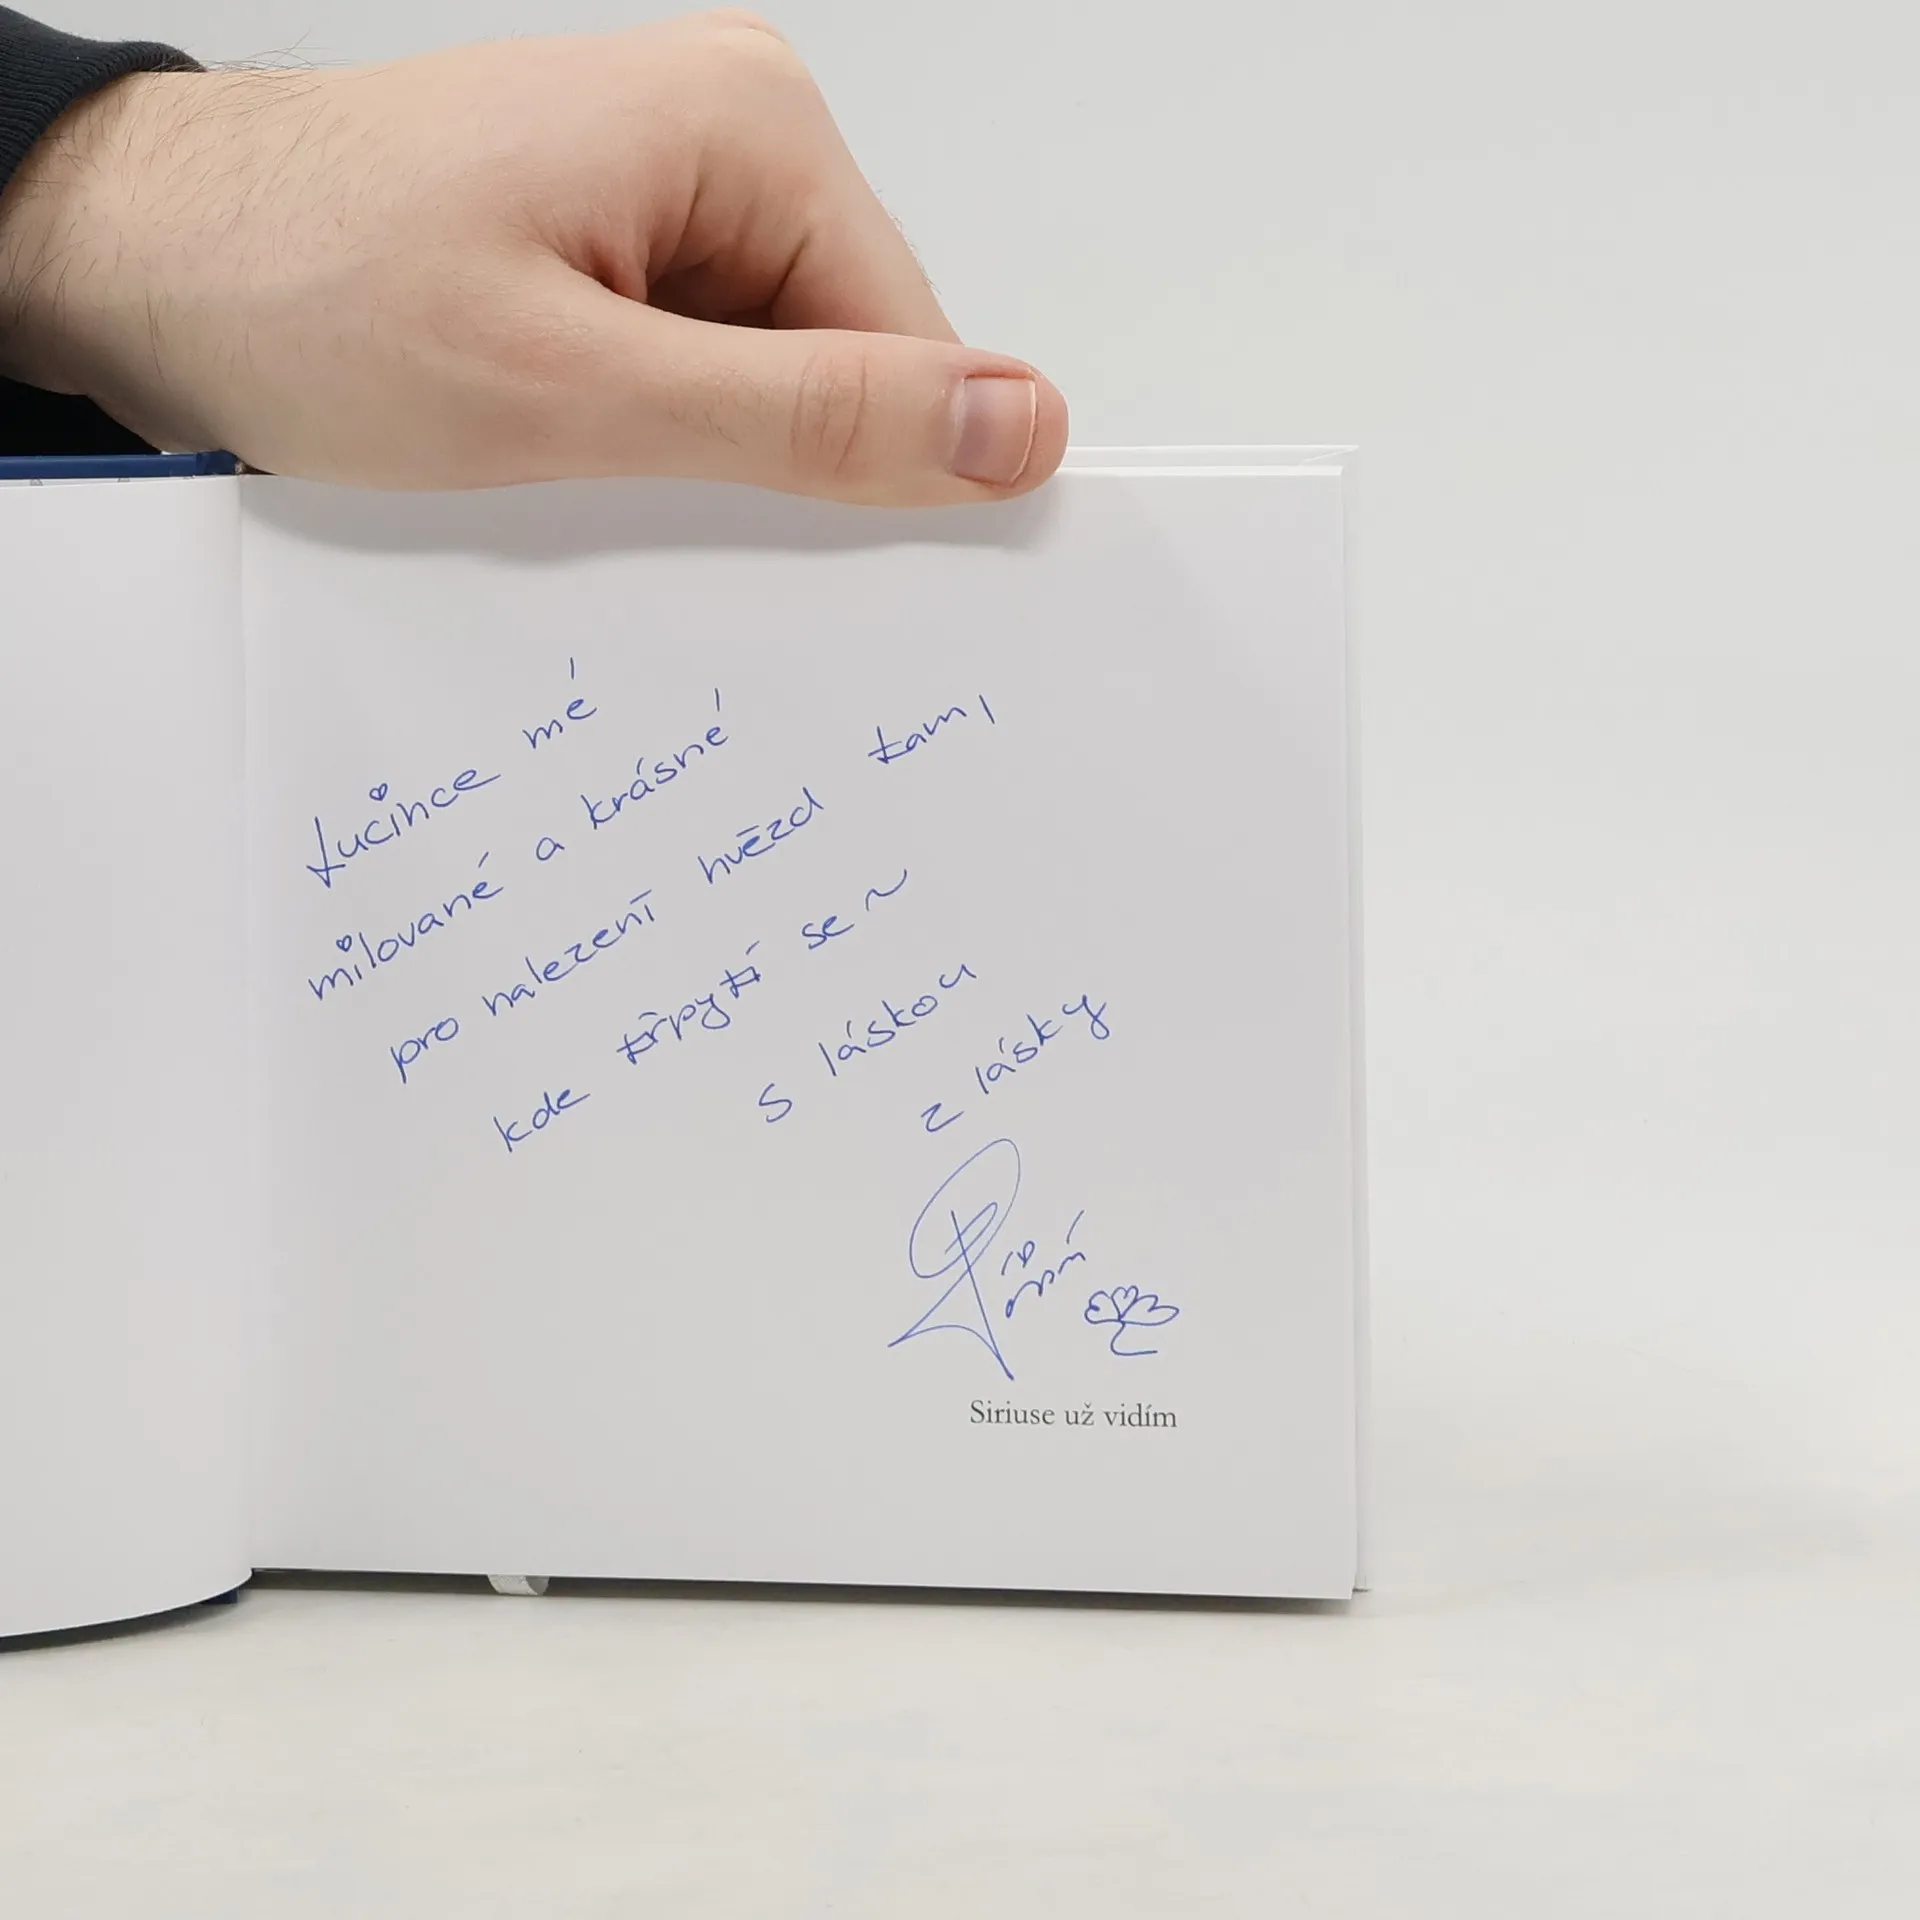 Lucince mé
milované a krásné
pro nalezení hvězd tam,
kde třpytí se ~
s láskou
z lásky
Siriuse už vidím